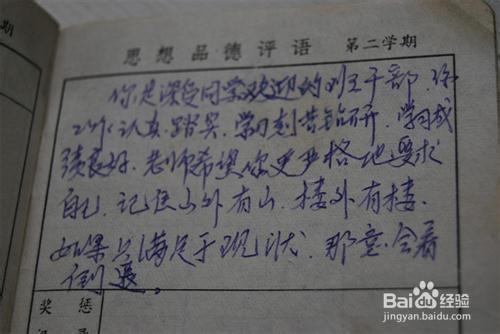 思想品德评语 第二学期
你是深受同学欢迎的班干部，你
工作认真踏实，学习刻苦钻研，学习成
绩良好，老师希望你更严格地要求
自己，记住山外有山，楼外有楼，
如果只满足于现状，那意会着
倒退。
奖惩
Baidu经验
jingyan.baidu.com